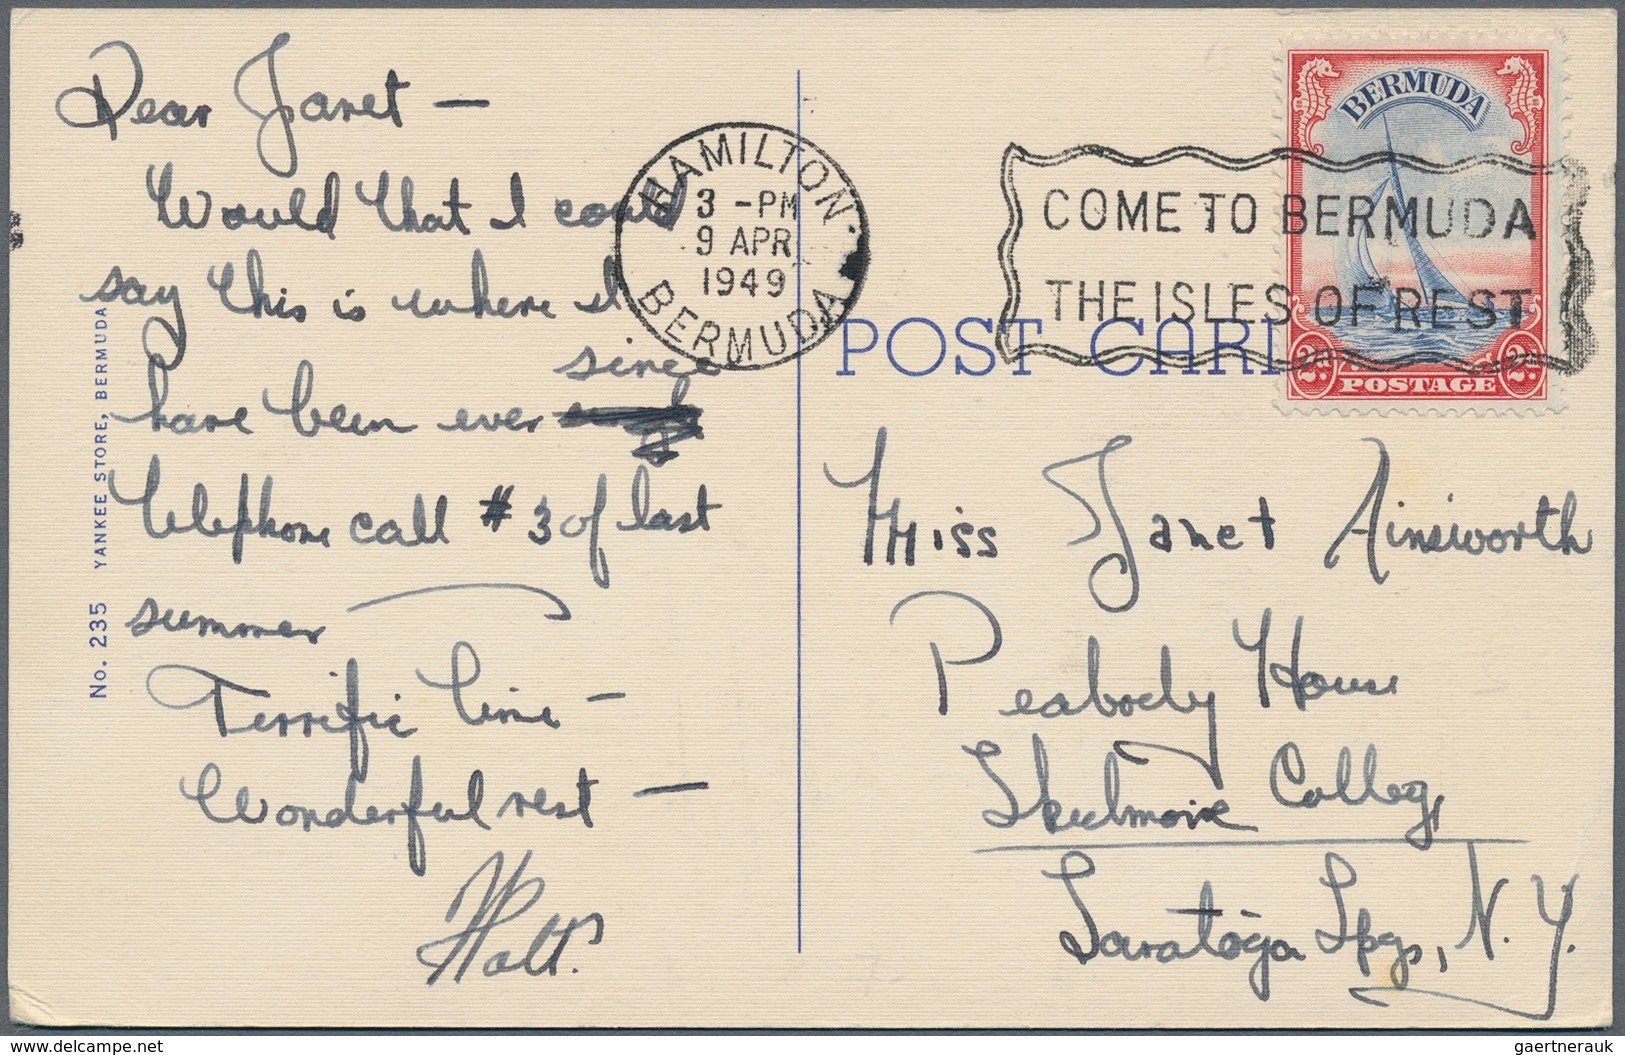 Dear Janet —
Would that I could
say this is where I
since
have been ever
telephone call #3 of last
summer
Terrific time —
Wonderful rest —
Walt.
No. 235 YANKEE STORE, BERMUDA
HAMILTON
3 - PM
9 APR
1949
BERMUDA
COME TO BERMUDA
THE ISLES OF REST
BERMUDA
2d. 2d.
POSTAGE
POST CARD
Miss Janet Ainsworth
Peabody House
Skidmore College,
Saratoga Spgs, N.Y.
delcampe.net
gaertnerauk